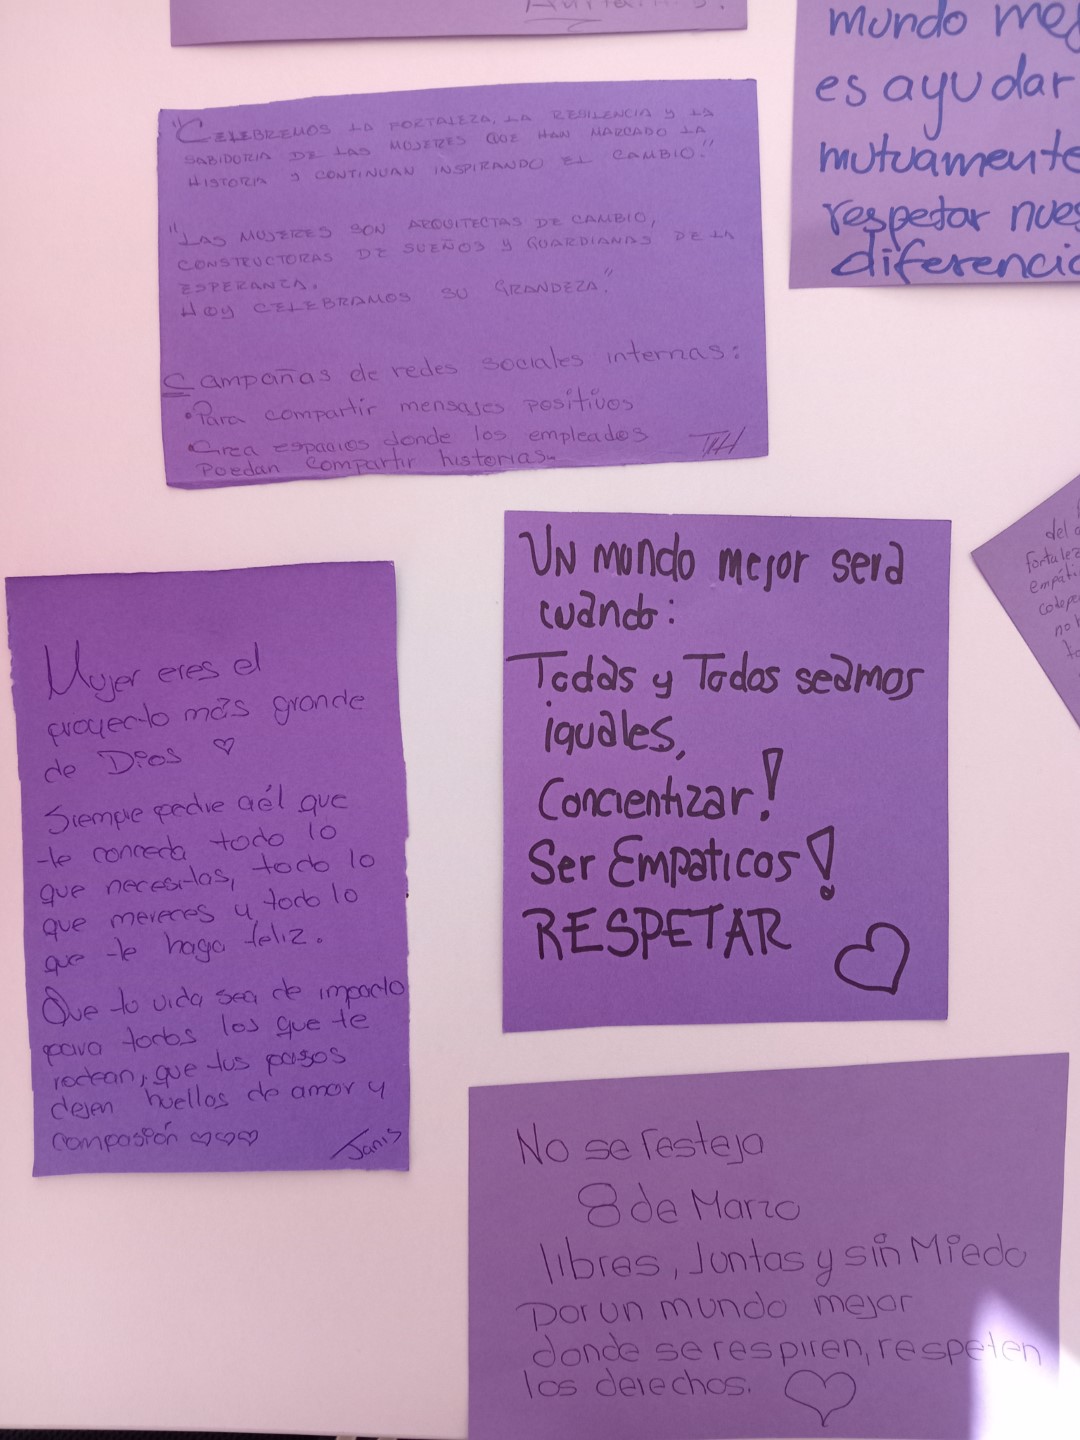 mundo
es ayudar
mutuamente
respetar
"CELEBREMOS LA FORTALEZA, LA RESILENCIA Y LA
SABIDORIA DE LAS MUJERES QUE HAN MARCADO LA
HISTORIA Y CONTINUAN INSPIRANDO EL CAMBIO."
"LAS MUJERES SON ARQUITECTAS DE CAMBIO,
CONSTRUCTORAS DE SUEÑOS Y GUARDIANAS DE LA
ESPERANZA.
HOY CELEBRAMOS SU GRANDEZA."
Campañas de redes sociales internas:
•Para compartir mensajes positivos
•Crea espacios donde los empleados
puedan compartir historias.
TH
UN mundo mejor será
cuando:
Todas y Todos seamos
iguales,
Concientizar!
Ser Empaticos!
RESPETAR
Mujer eres el
proyecto más grande
de Dios ♡
Siempre pedire a él que
te conceda todo lo
que necesitas, todo lo
que mereces y todo lo
que te haga feliz.
Que tu vida sea de impacto
para todos los que te
rodean, que tus pasos
dejen huellas de amor y
compasión ♡♡♡
Janis
No se festeja
8 de Marzo
libres, Juntas y sin Miedo
por un mundo mejor
donde se respiren, respeten
los derechos. ♡